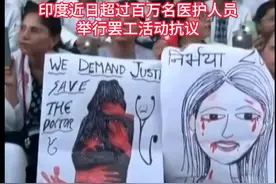 印度近日超过百万名医护人员
举行罢工活动抗议
WE DEMAND JUSTI
SAVE
THE
DOCTOR
निर्भया